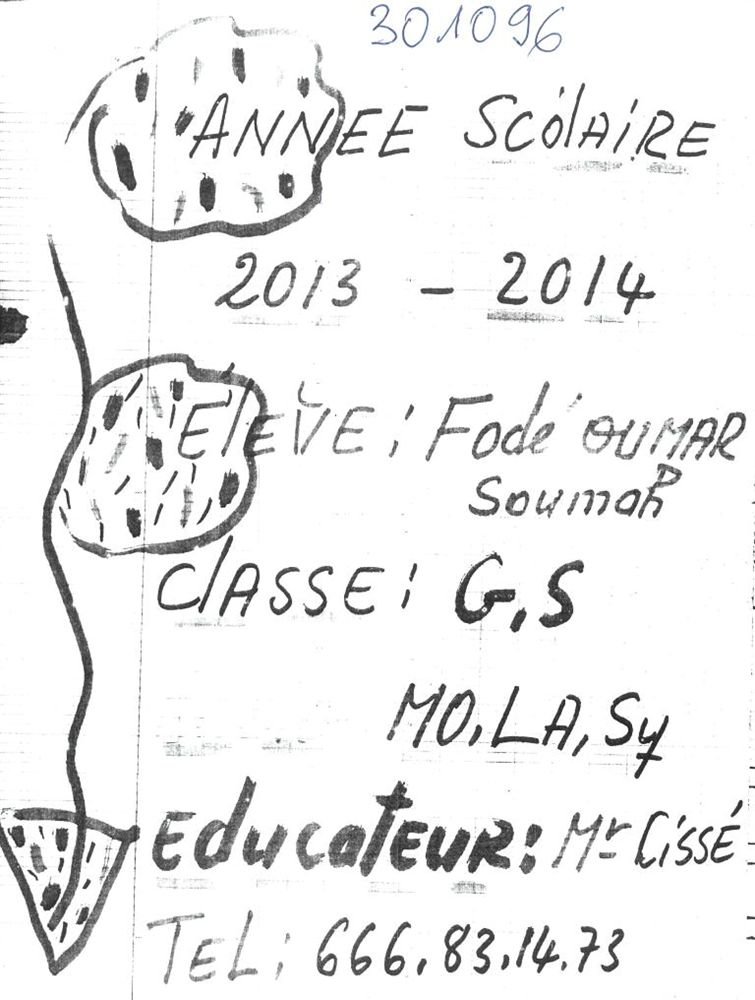 301096
ANNEE SCOlAiRE
2013 - 2014
ÉlEVE : Fodé OUMAR
Soumah
ClASSE : G.S
MO.LA, Sy
EducatEUR : Mr CiSSÉ
TEL : 666.83.14.73